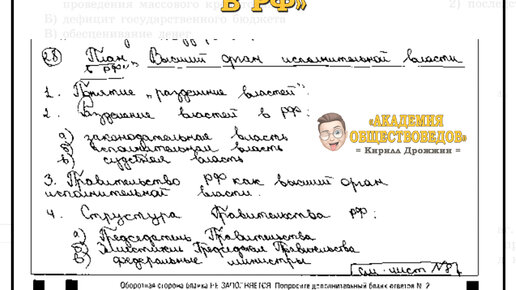 проведения массового
2) послед
В РФ»
В) дефицит государственного бюджета
В) обесценивание денег
28 План „Высший орган исполнительной власти
в РФ“
1. Понятие „разделение властей“:
2. Разделение властей в РФ:
а) законодательная власть
б) исполнительная власть
в) судебная власть
3. Правительство РФ как высший орган
исполнительной власти.
4. Структура Правительства РФ:
а) Председатель Правительства
б) Заместители Председателя Правительства
в) федеральные министры
см. лист №8
«АКАДЕМИЯ
ОБЩЕСТВОВЕДОВ»
= Кирилл Дрожжин =
Оборотная сторона бланка НЕ ЗАПОЛНЯЕТСЯ. Попросите дополнительный бланк ответов № 2